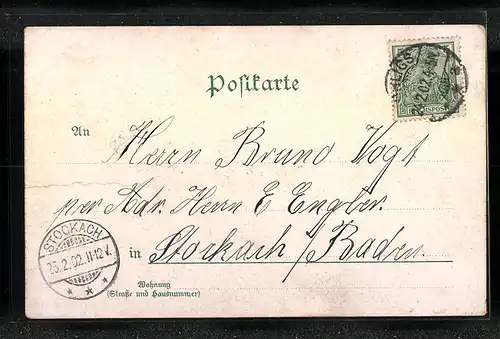 Postkarte
An Herrn Bruno Vogt
per Adr. Herrn E Engler.
in Stockach / Baden.
Wohnung
(Straße und Hausnummer)
STOCKACH
25.2.02.11-12V.